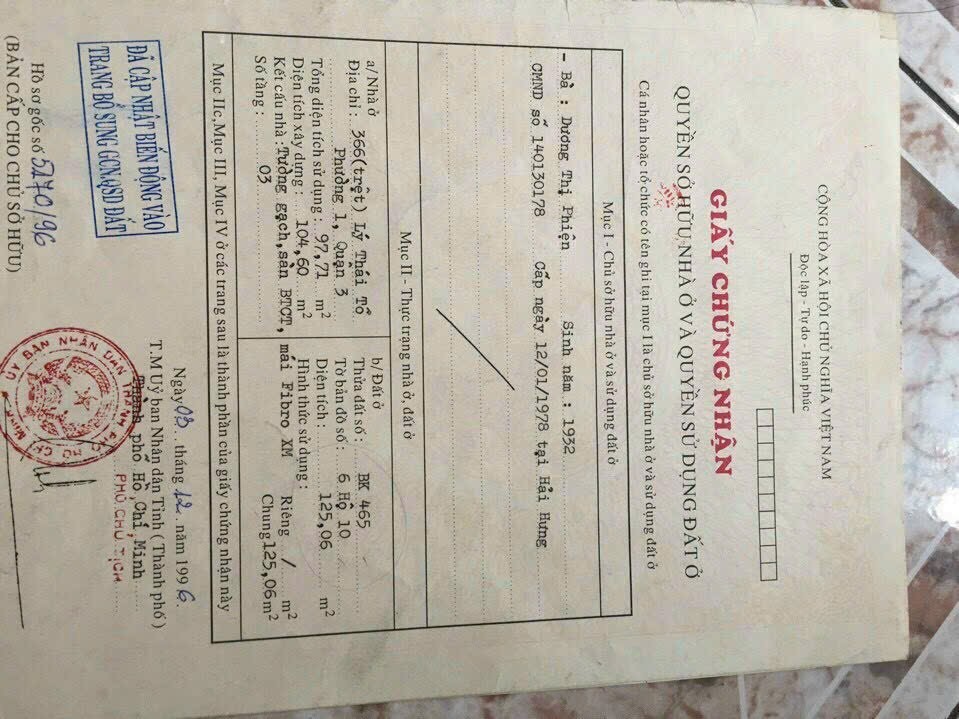 CỘNG HÒA XÃ HỘI CHỦ NGHĨA VIỆT NAM
Độc lập - Tự do - Hạnh phúc
GIẤY CHỨNG NHẬN
QUYỀN SỞ HỮU NHÀ Ở VÀ QUYỀN SỬ DỤNG ĐẤT Ở
Cá nhân hoặc tổ chức có tên ghi tại mục I là chủ sở hữu nhà ở và sử dụng đất ở
Mục I - Chủ sở hữu nhà ở và sử dụng đất ở
- Bà : Dương Thị Phiện Sinh năm : 1932
CMND số 140130178 Cấp ngày 12/01/1978 tại Hải Hưng
Mục II - Thực trạng nhà ở, đất ở
a/ Nhà ở
Địa chỉ : 366(trệt) Lý Thái Tổ
Phường 1, Quận 3
Tổng diện tích sử dụng : 97,71 m2
Diện tích xây dựng : 104,60 m2
Kết cấu nhà : Tường gạch, sàn BTCT, mái Fibro XM
Số tầng : 03
b/ Đất ở
Thửa đất số : BK 465
Tờ bản đồ số : 6 Hộ 10
Diện tích : 125,06 m2
Hình thức sử dụng :
Riêng / m2
Chung 125,06 m2
Mục IIc, Mục III, Mục IV ở các trang sau là thành phần của giấy chứng nhận này
ĐÃ CẬP NHẬT BIẾN ĐỘNG VÀO
TRANG BỔ SUNG GCNQSD ĐẤT
Hồ sơ gốc số 5270/96
(BẢN CẤP CHO CHỦ SỞ HỮU)
Ngày 03 tháng 12 năm 1996
T.M Uỷ ban Nhân dân Tỉnh ( Thành phố )
Thành phố Hồ Chí Minh
PHÓ CHỦ TỊCH